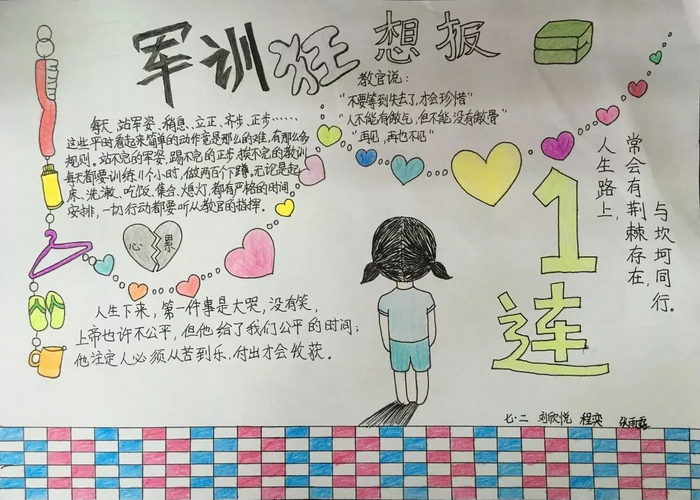 军训狂想报
教官说:
“不要等到失去了,才会珍惜”
“人不能有傲气,但不能没有傲骨”
“再见,再也不见”
每天站军姿、稍息、立正、齐步、正步……
这些平时看起来简单的动作竟是那么的难,有那么多
规则。站不完的军姿,踢不完的正步,挨不完的教训
每天都要训练11个小时,做两百个下蹲,无论是起
床、洗漱、吃饭、集合、熄灯,都有严格的时间
安排,一切行动都要听从教官的指挥。
心累
人生下来,第一件事是大哭,没有笑,
上帝也许不公平,但他给了我们公平的时间;
他注定人必须从苦到乐,付出才会收获。
1连
人生路上,
常会有荆棘存在,
与坎坷同行。
七·二 刘欣悦 程奕 张雨露